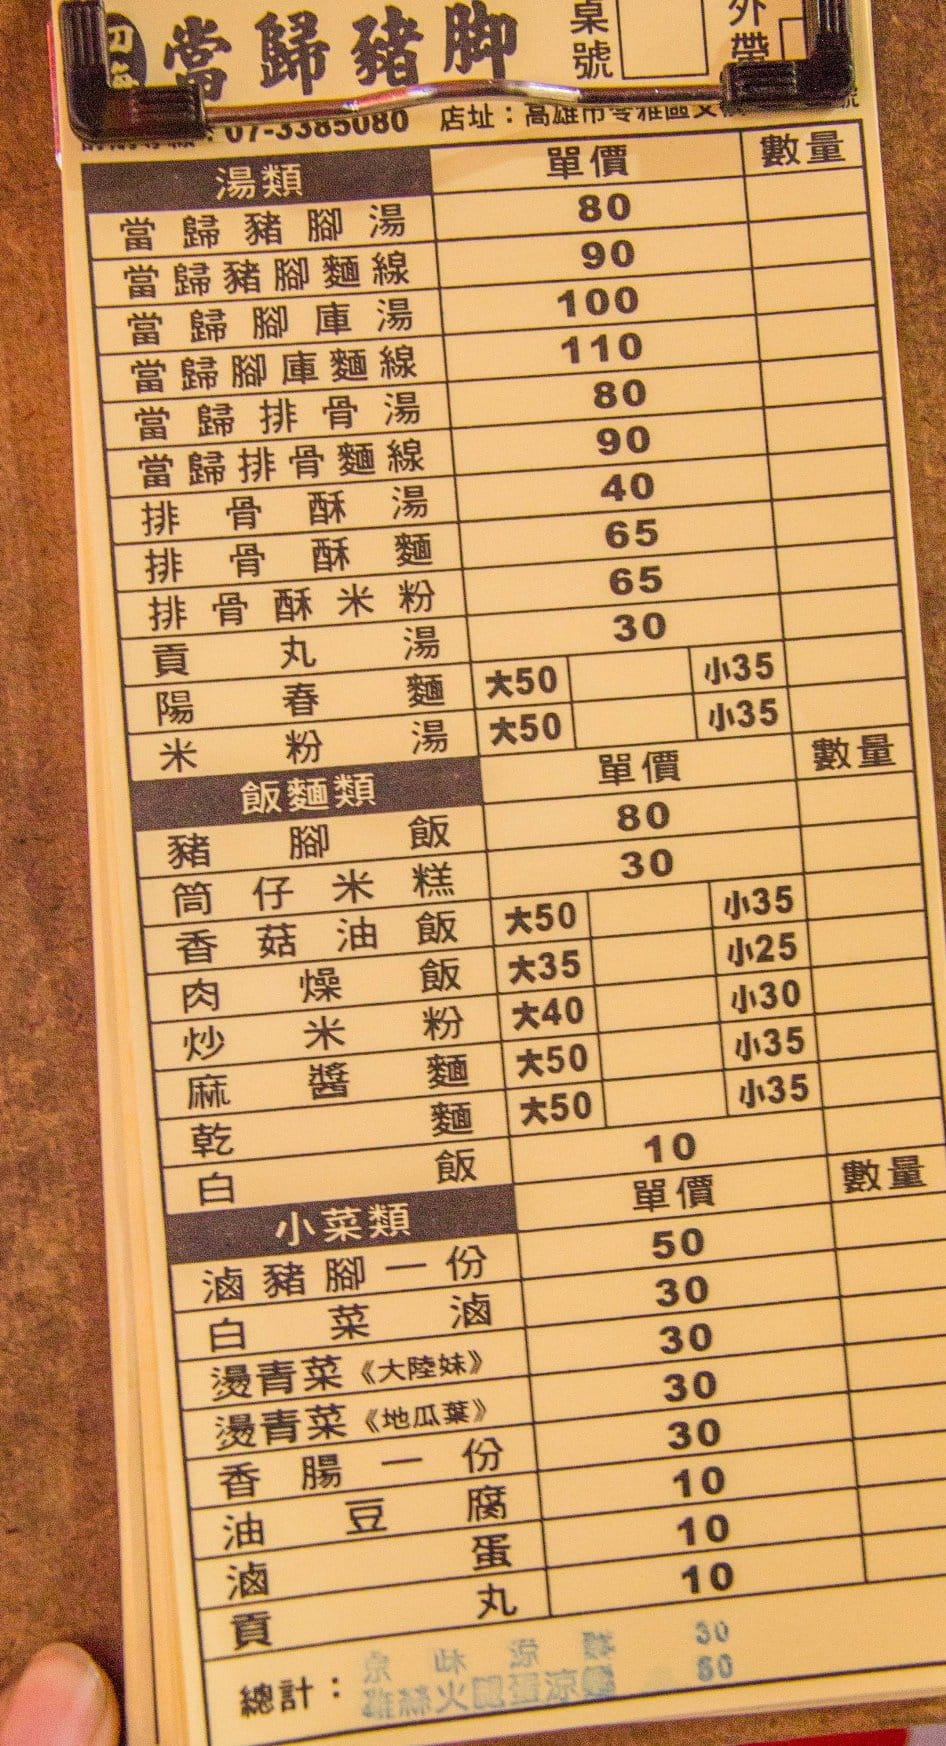 當歸豬脚 桌號 外帶
07-3385080 店址：高雄市苓雅區文
湯類 單價 數量
當歸豬腳湯 80
當歸豬腳麵線 90
當歸腳庫湯 100
當歸腳庫麵線 110
當歸排骨湯 80
當歸排骨麵線 90
排骨酥湯 40
排骨酥麵 65
排骨酥米粉 65
貢丸湯 30
陽春麵 大50 小35
米粉湯 大50 小35
飯麵類 單價 數量
豬腳飯 80
筒仔米糕 30
香菇油飯 大50 小35
肉燥飯 大35 小25
炒米粉 大40 小30
麻醬麵 大50 小35
乾麵 大50 小35
白飯 10
小菜類 單價 數量
滷豬腳一份 50
白菜滷 30
燙青菜《大陸妹》 30
燙青菜《地瓜葉》 30
香腸一份 30
油豆腐 10
滷蛋 10
貢丸 10
30
總計：